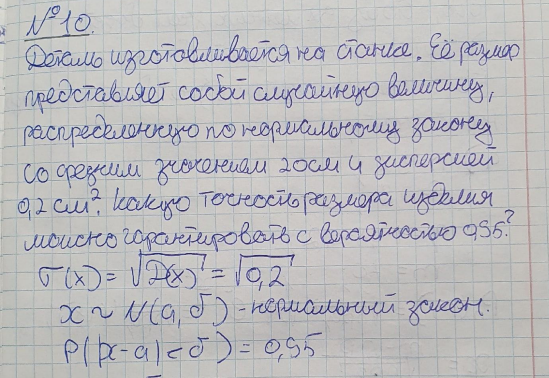 №10.
Деталь изготавливается на станке. Её размер
представляет собой случайную величину,
распределенную по нормальному закону
со средним значением 20см и дисперсией
0,2 см². Какую точность размера изделия
можно гарантировать с вероятностью 0,95?
σ(x) = √D(x) = √0,2
x ~ N(a, σ) - нормальный закон.
P(|x-a| < δ) = 0,95